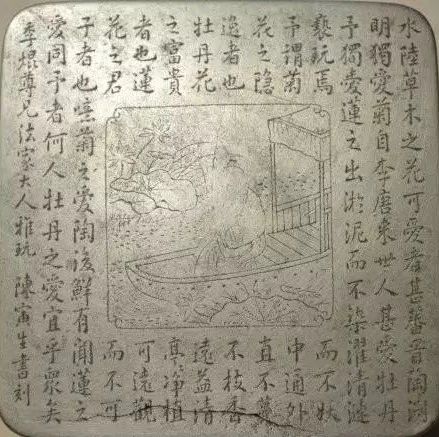 水陸草木之花可愛者甚蕃晉陶淵
明獨愛菊自李唐來世人甚愛牡丹
予獨愛蓮之出淤泥而不染濯清漣
而不妖
中通外
直不蔓
不枝香
遠益清
亭淨植
可遠觀
而不可
褻玩焉
予謂菊
花之隐
逸者也
牡丹花
之富貴
者也蓮
花之君
子者也噫菊之愛陶後鮮有聞蓮之
愛同予者何人牡丹之愛宜乎眾矣
尊兄法家大人雅玩 陳寅生書刻